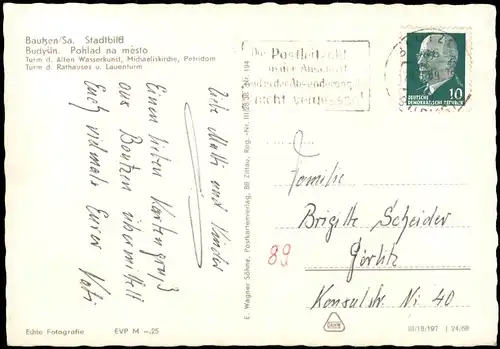 Bautzen/Sa. Stadtbild
Budyšin. Pohlad na město
Turm d. Alten Wasserkunst, Michaeliskirche, Petridom
Turm d. Rathauses u. Lauenturm
Liebe Mutti und Kinder
Einen lieben Kartengruß
aus Bautzen übermittelt
Euch vielmals Eurer Vati
Echte Fotografie EVP M -.25
E. Wagner Söhne, Postkartenverlag, 88 Zittau, Reg.-Nr. III/28/38 Nr. 194
Die Postleitzahl
in der Anschrift
und in der Absenderangabe
nicht vergessen!
DEUTSCHE
DEMOKRATISCHE REPUBLIK
10
Familie
Brigitte Scheider
89 Görlitz
Konsulstr. Nr. 40
III/18/197 J 24/68